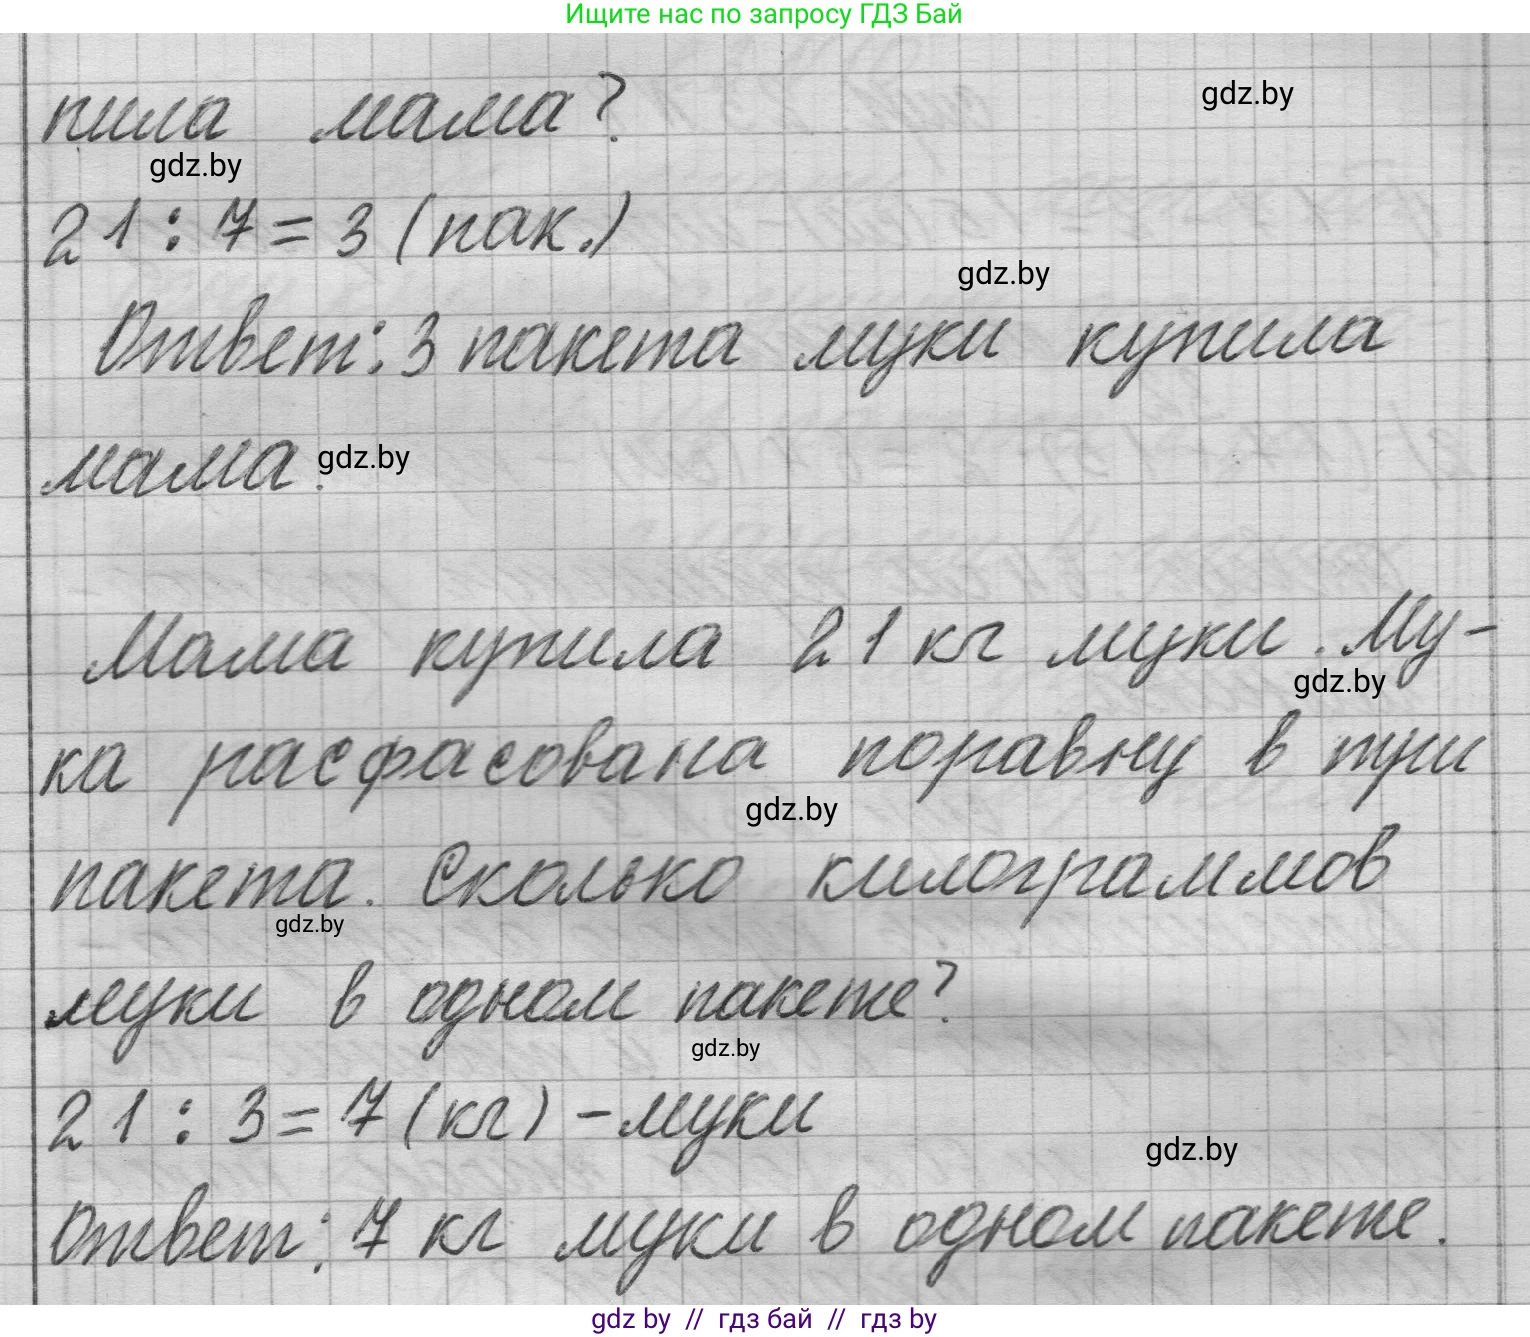 Ищите нас по запросу ГДЗ Бай
пила мама?
gdz.by
gdz.by
21 : 7 = 3 (пак.)
gdz.by
Ответ: 3 пакета муки купила
мама.
gdz.by
Мама купила 21 кг муки. Му-
gdz.by
ка расфасована поравну в три
gdz.by
пакета. Сколько килограммов
gdz.by
муки в одном пакете?
gdz.by
21 : 3 = 7 (кг) - муки
gdz.by
Ответ: 7 кг муки в одном пакете.
gdz by // гдз бай // гдз by